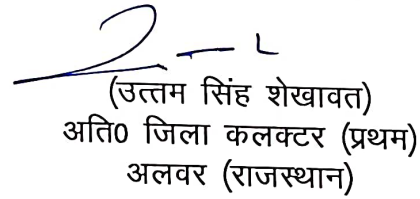 (उत्तम सिंह शेखावत)
अति0 जिला कलक्टर (प्रथम)
अलवर (राजस्थान)